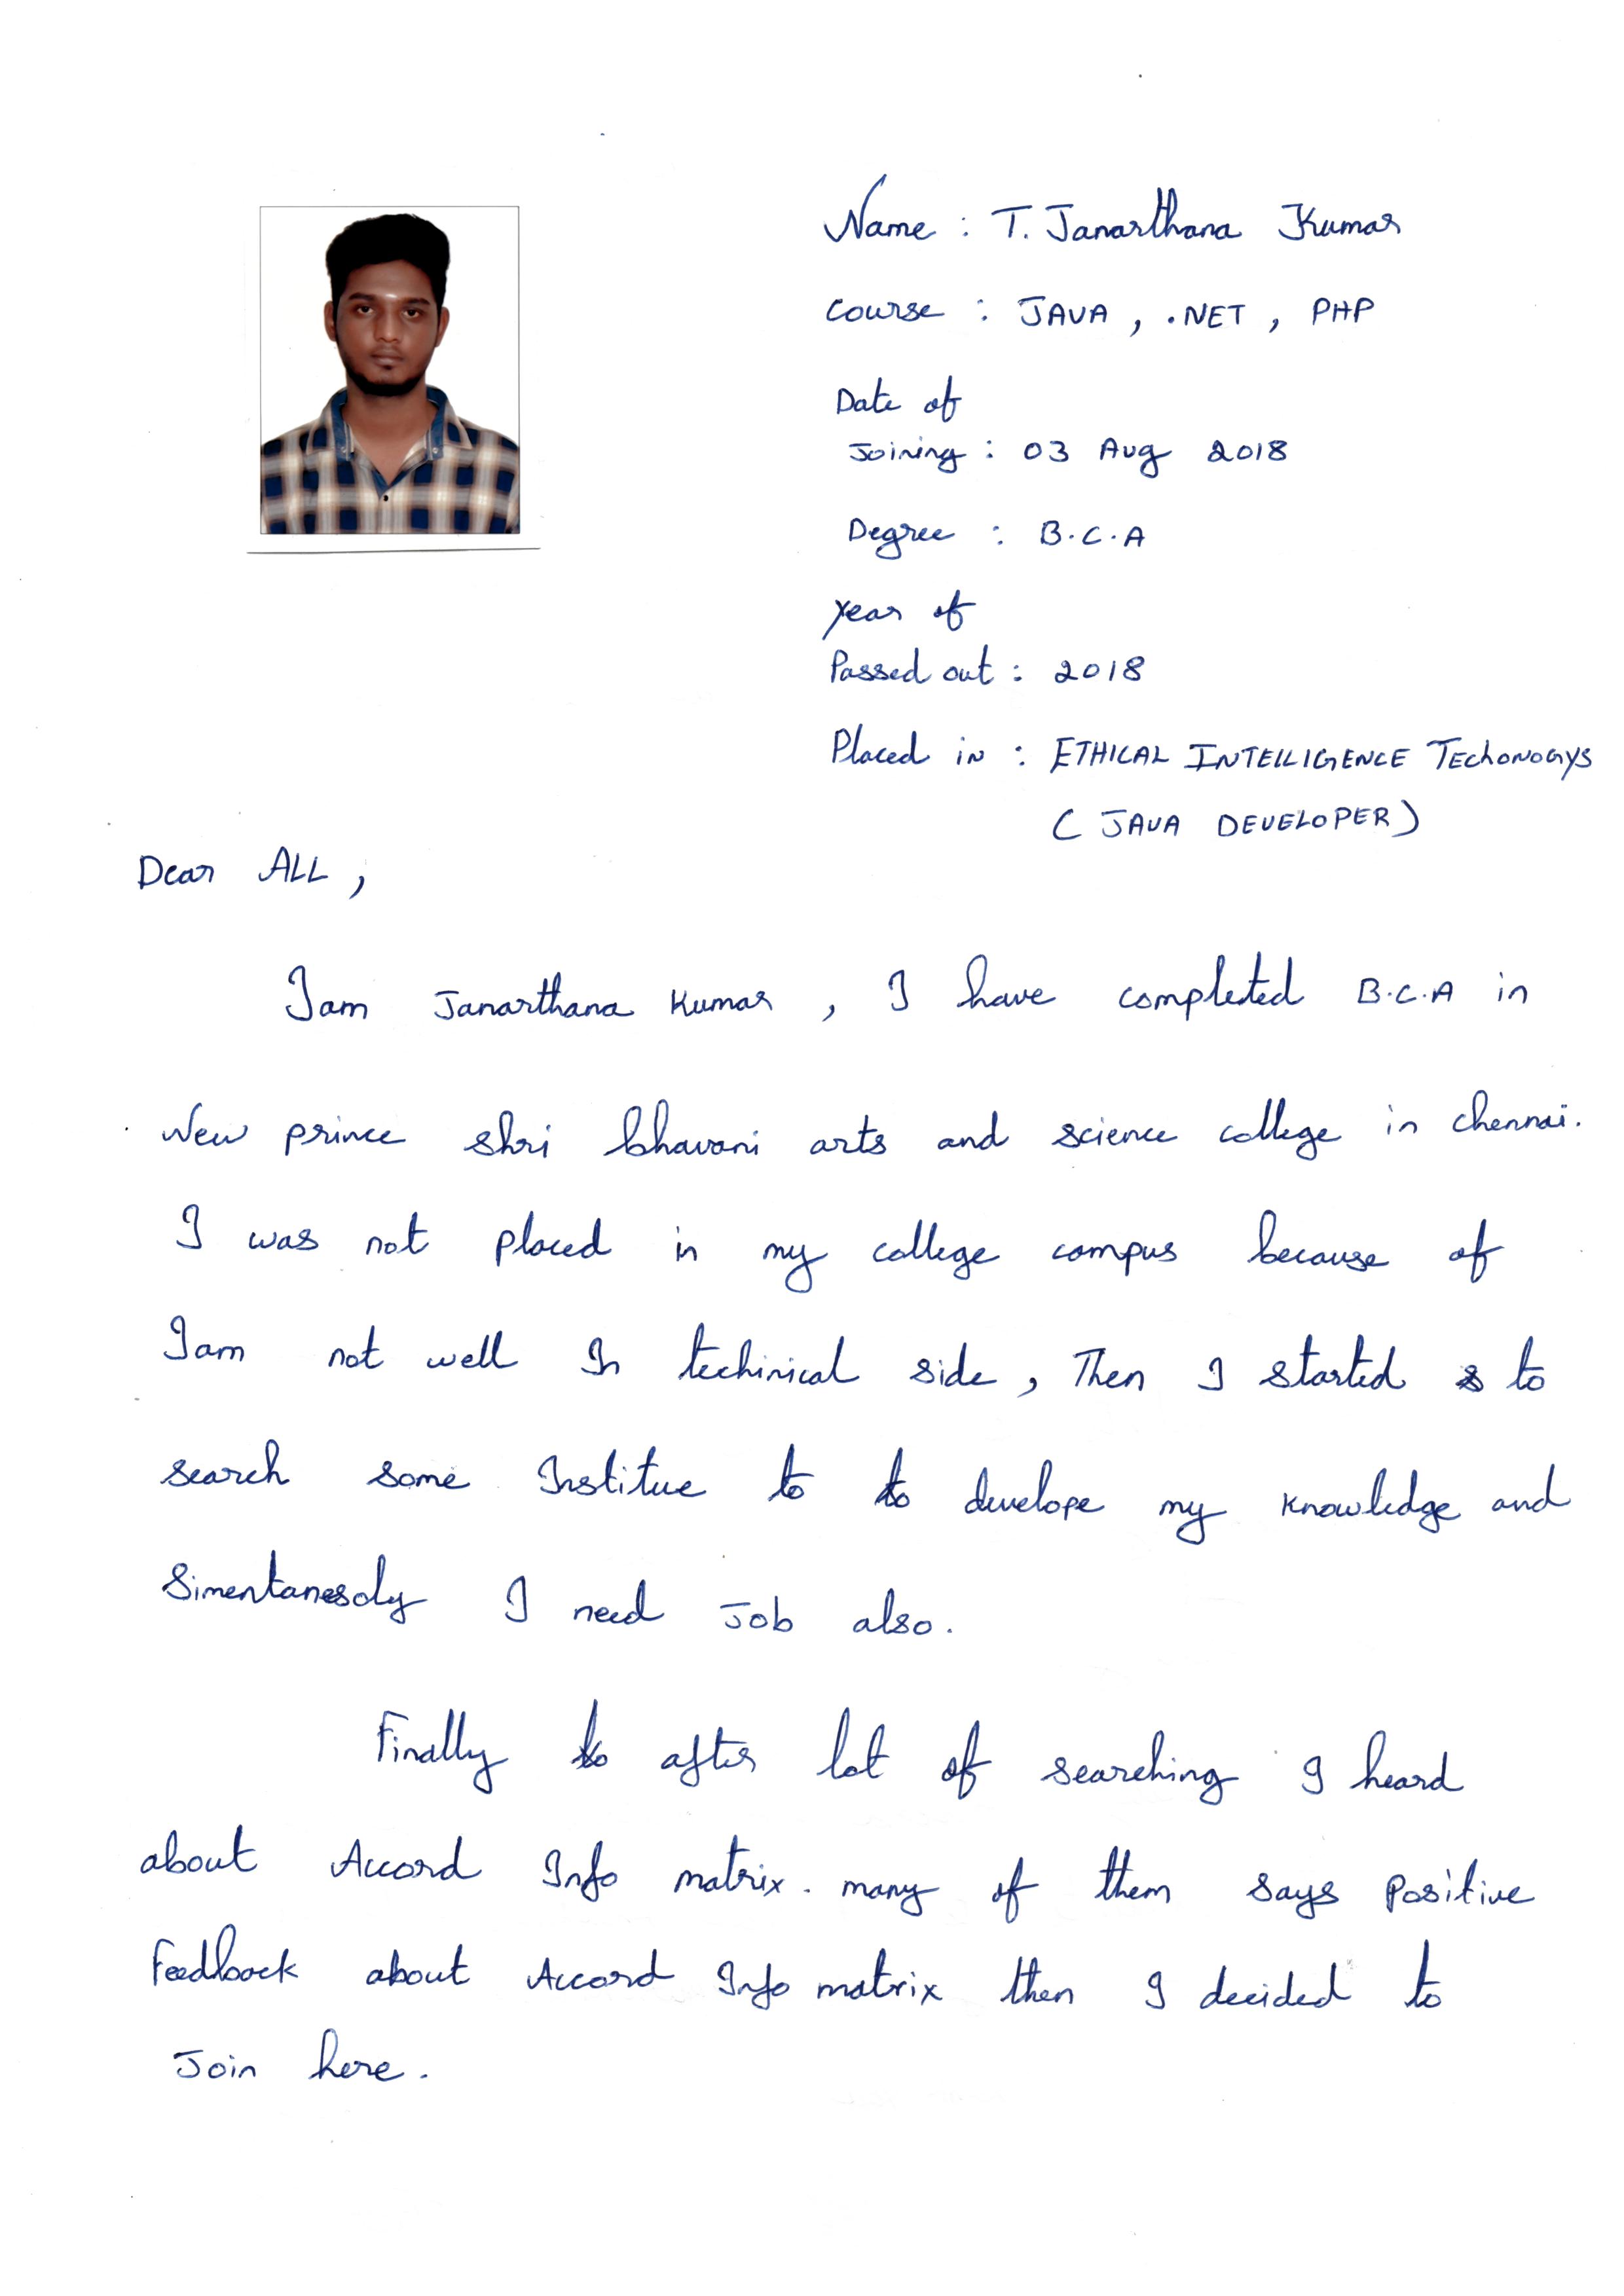 Name : T. Janarthana Kumar
Course : JAVA , .NET , PHP
Date of
Joining : 03 Aug 2018
Degree : B.C.A
Year of
Passed out : 2018
Placed in : ETHICAL INTELLIGENCE TechonoGys
( JAVA DEVELOPER)
Dear ALL ,
Iam Janarthana Kumar , I have completed B.C.A in
New prince shri bhavani arts and science college in chennai.
I was not placed in my college campus because of
Iam not well In techinical side , Then I started to
search some Institue to to develope my knowledge and
Simentanesoly I need Job also.
Finally to after lot of searching I heard
about Accord Info matrix. many of them says positive
Feedback about Accord Info matrix then I decided to
Join here.